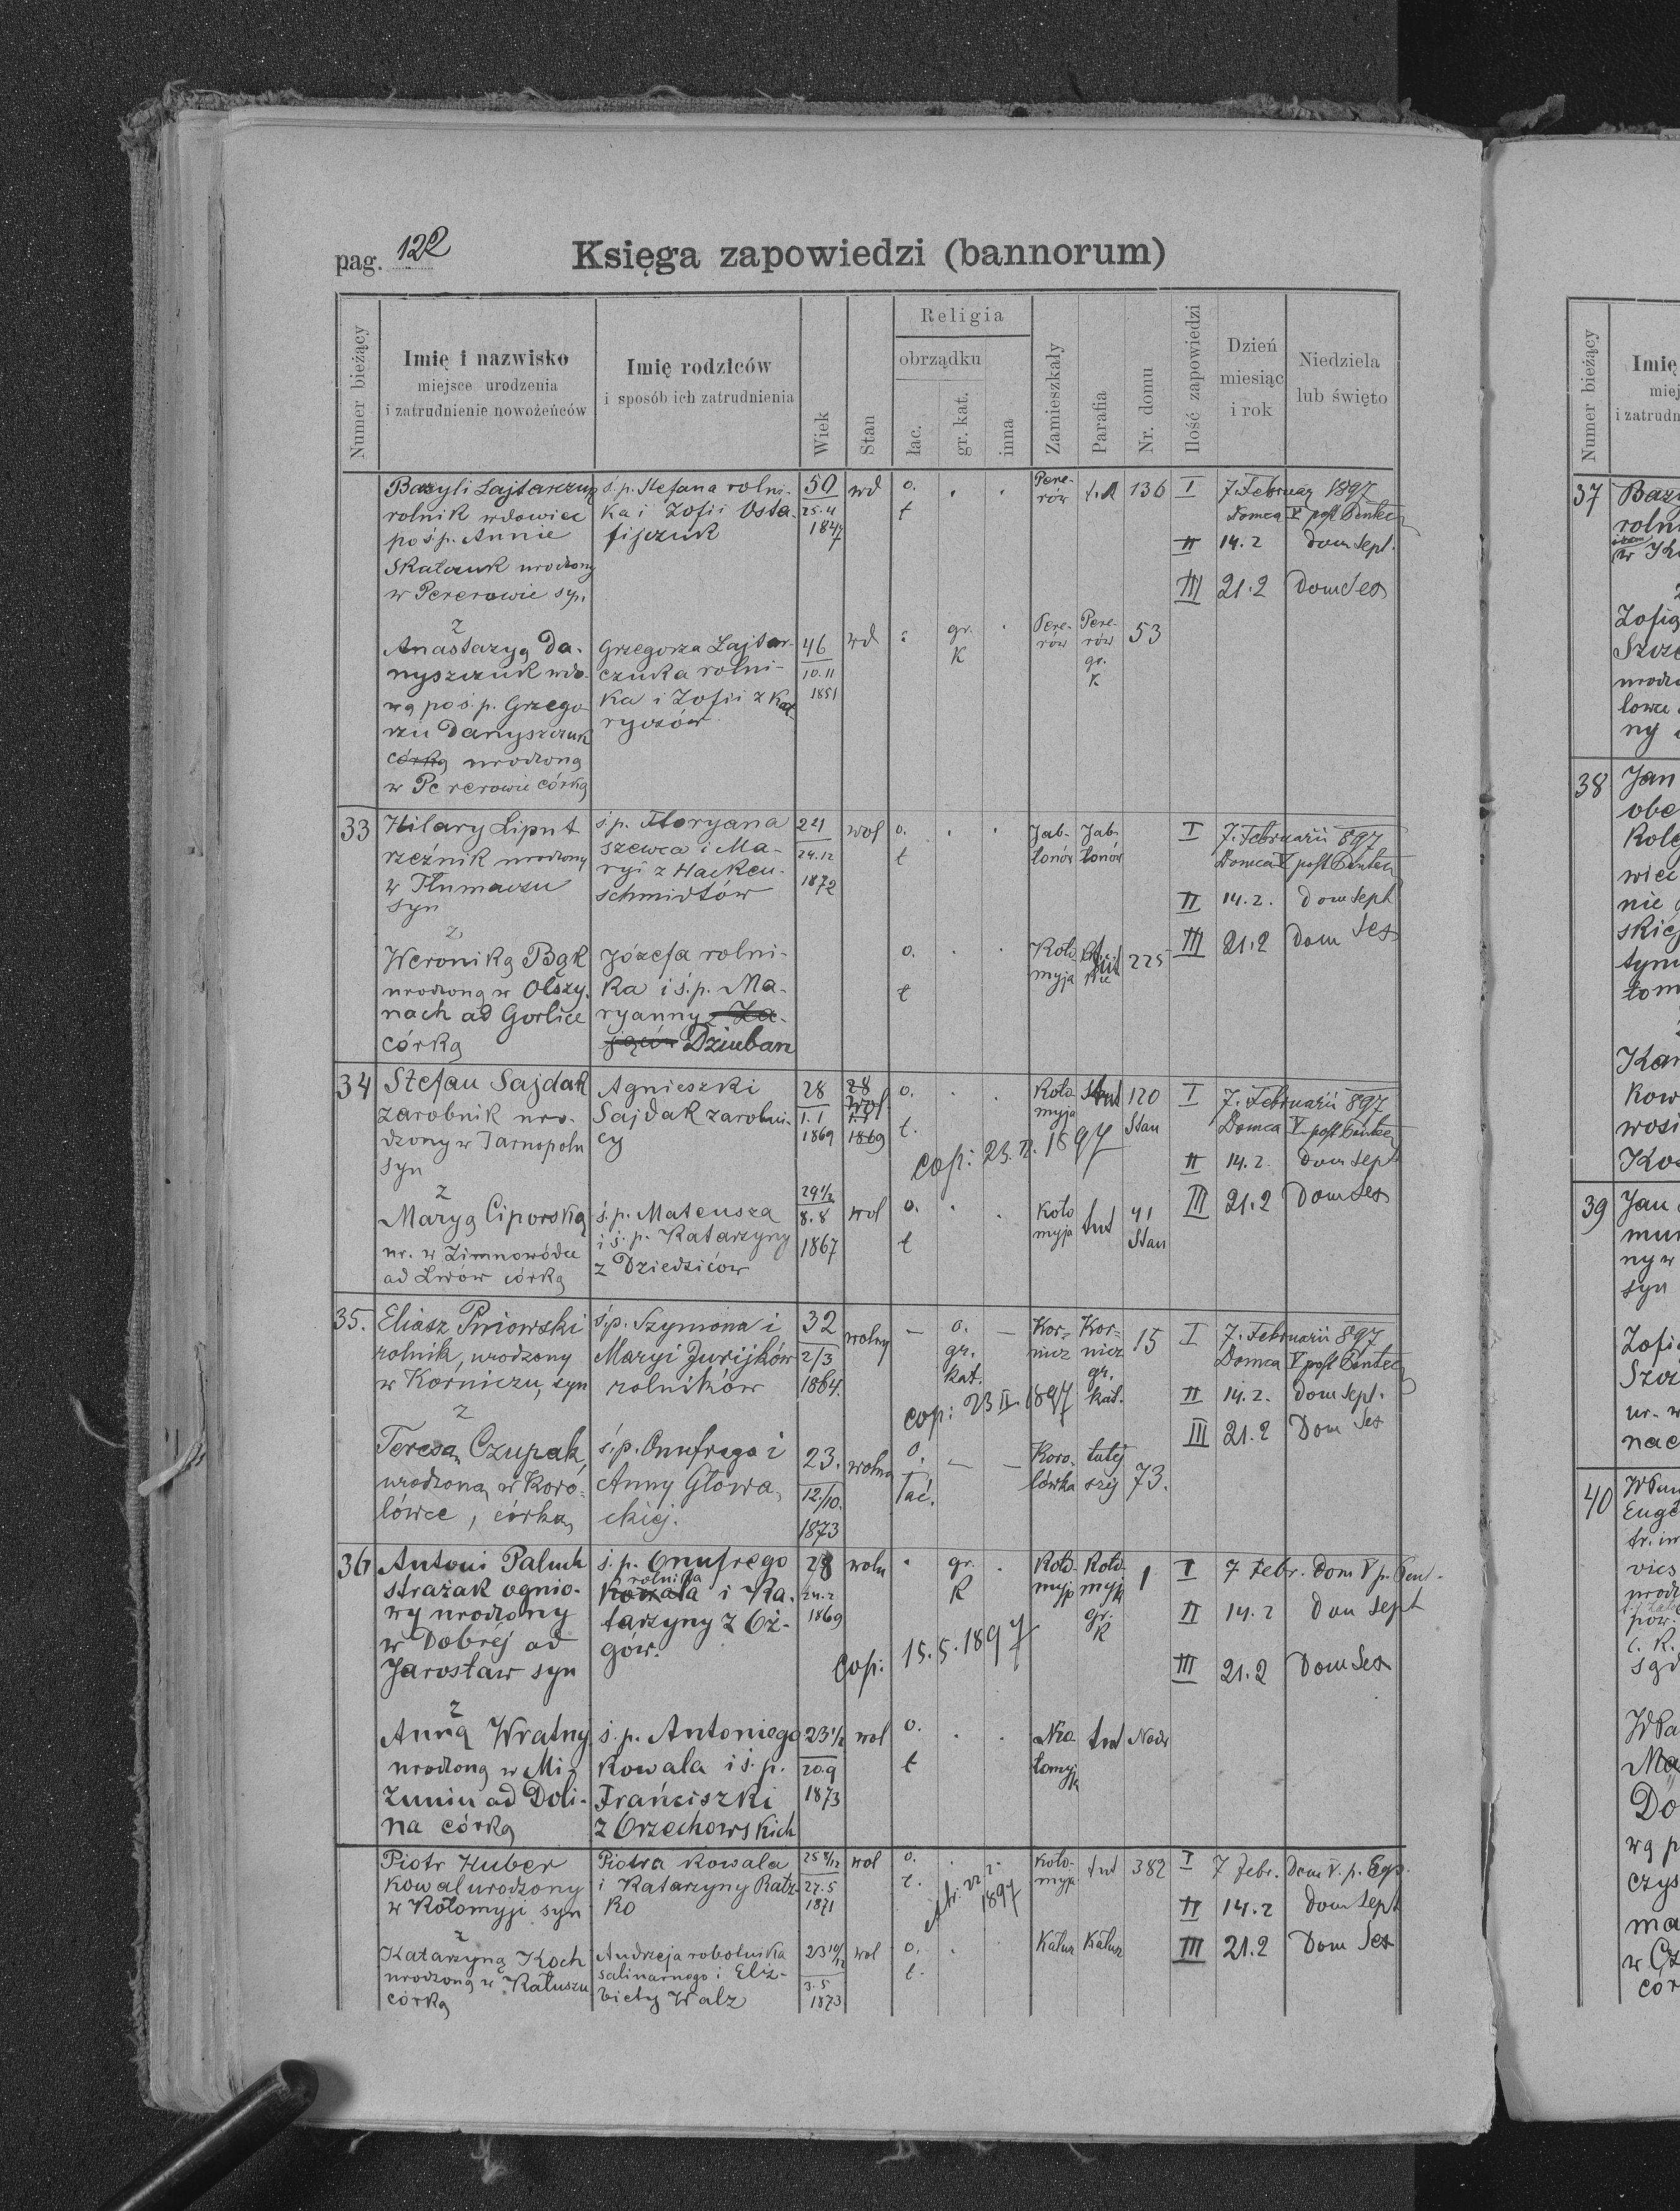 pag. 122
Księga zapowiedzi (bannorum)
Numer bieżący
Imię i nazwisko
miejsce urodzenia
i zatrudnienie nowożeńców
Imię rodziców
i sposób ich zatrudnienia
Wiek
Stan
Religia
obrządku
łac.
gr. kat.
inna
Zamieszkały
Parafia
Nr. domu
Ilość zapowiedzi
Dzień
miesiąc
i rok
Niedziela
lub święto
Bazyli Lajtarczuk
rolnik wdowiec
po ś.p. Annie
Skalczuk urodzony
w Pererowie sy.
ś.p. Stefana rolni-
ka i Zofii Osta-
fijczuk
50
25.4
1847
wd
o.
ł
Pere-
rów
136
I
7. Februar 1897
Domca V post Pentec
II
14.2
Dom Sept.
III
21.2
Dom Sex
z
Anastazyą Da-
nyszczuk wdo-
wą po ś.p. Grzego
rzu Danyszczuk
córką urodzoną
w Pererowie córką
Grzegorza Lajtar-
czuka rolni-
ka i Zofii z Kat
ryczów
46
10.11
1851
wd
gr.
K
Pere-
rów
Pere-
rów
gr.
K
53
33
Hilary Liput
rzeźnik urodzony
w Tłumaczu
syn
ś.p. Floryana
szewca i Ma-
ryi z Hacken-
schmidtów
24
24.12
1872
wol
o.
ł
Jab-
łonów
Jab-
łonów
I
7. Februarii 897
Domca V post Pentec
II
14.2.
Dom Sept
III
21.2
Dom Sex
z
Weroniką Bąk
urodzoną w Olszy-
nach ad Gorlice
córką
Józefa rolni-
ka i ś.p. Ma-
ryanny z Za-
jąców Dziuban
o.
ł
Koło
myja
tut
225
34
Stefan Sajdak
zarobnik uro-
dzony w Tarnopolu
syn
Agnieszki
Sajdak zarobni-
cy
28
1.1
1869
28
wol
1.1
1869
o.
ł.
Koło
myja
tut
120
Stan
I
7. Februarii 897
Domca V post Pentec
cop: 23.II.1897
II
14.2.
Dom Sept
III
21.2
Dom Sex
z
Maryą Ciporską
ur. w Zimnowódce
ad Lwów córką
ś.p. Mateusza
i ś.p. Katarzyny
z Dziedziców
29 1/2
8.8
1867
wol
o.
ł
Koło
myja
tut
41
Stan
35.
Eliasz Pniowski
rolnik, urodzony
w Korniczu, syn
ś.p. Szymona i
Maryi Jurijków
rolników
32
2/3
1864.
wolny
—
o.
gr.
kat.
—
Kor-
nicz
Kor-
nicz
gr.
kat.
15
I
7. Februarii 897
Domca V post Pentec
cop: 23 II. 1897
II
14.2.
Dom Sept.
III
21.2
Dom Sex
z
Teresą Czupak,
urodzoną w Koro-
lówce, córką
ś.p. Onufrego i
Anny Głowa-
ckiej.
23.
12./10.
1873
wolna
o.
łać.
—
—
Koro-
lówka
tutej
szy
73.
36
Antoni Paluch
strażak ognio-
wy urodzony
w Dobréj ad
Jarosław syn
ś.p. Onufrego
rolnika
Kowala i Ka-
tarzyny z Oż-
gów.
28
24.2
1869
woln
gr.
K
Koło-
myja
Koło-
myja
gr.
K
1
I
7 Febr.
Dom V p. Pent.
II
14.2
Dom Sept
cop: 15.5.1897
III
21.2
Dom Sex
z
Anną Wratny
urodzoną w Mi-
zuniu ad Doli-
na córką
ś.p. Antoniego
Kowala i ś.p.
Franciszki
z Orzechowskich
23 1/2
20.9
1873
wol
o.
ł
Kołomyja
tut
Nadw
Piotr Huber
kowal urodzony
w Kołomyji syn
Piotra kowala
i Katarzyny Ratz
ko
25 8/12
27.5
1871
wol
o.
ł.
Koło-
myja
tut
382
I
7 Febr.
Dom V. p.
1897
II
14.2
Dom Sept
III
21.2
Dom Sex
z
Katarzyną Koch
urodzoną w Kałuszu
córką
Andrzeja robotnika
salinarnego i Elż-
biety Walz
23 10/12
3.5
1873
wol
o.
ł.
Kałusz
Kałusz
Numer bieżący
Imię
37
38
Jan
39
Jan
40